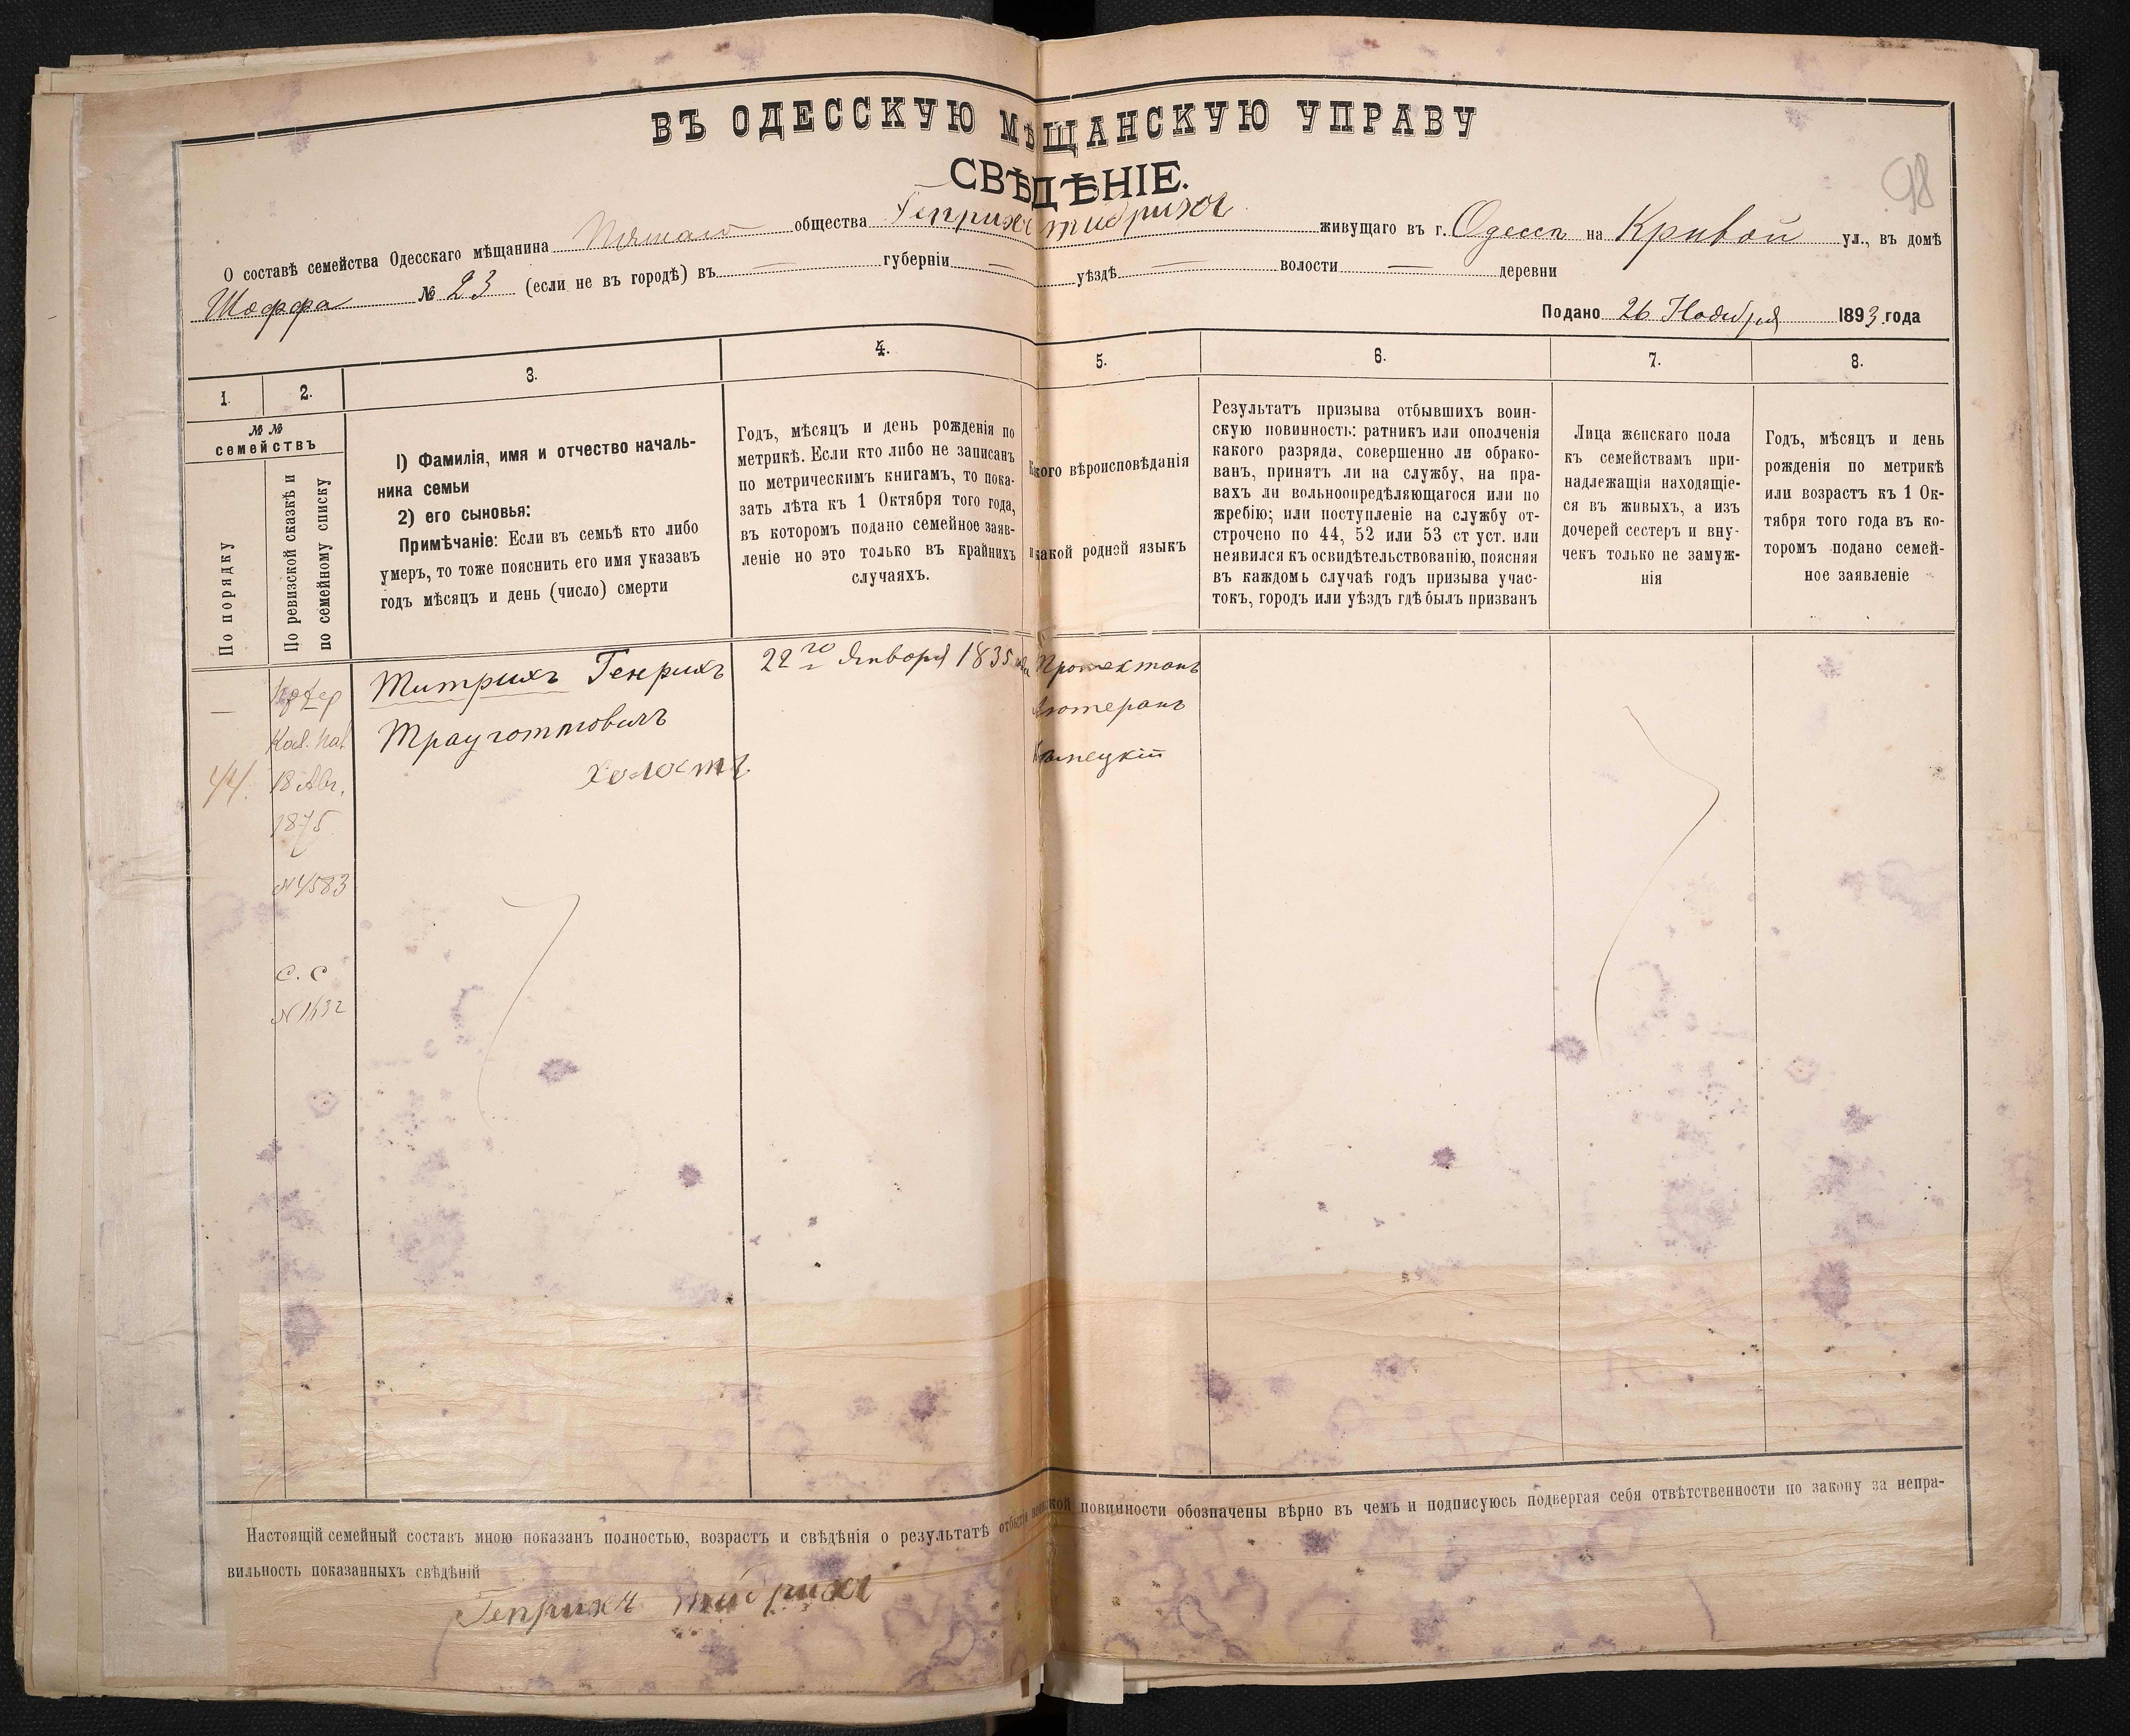 98
ВЪ ОДЕССКУЮ МѢЩАНСКУЮ УПРАВУ
СВѢДѢНІЕ.
О составѣ семейства Одесскаго мѣщанина общества Генриха живущаго въ г. Одесса на Кривой ул., въ домѣ
№ 23 (если не въ городѣ) въ — губерніи — уѣздѣ — волости — деревни
Подано 26 Ноября 1893 года
1.
2.
3.
4.
5.
6.
7.
8.
№ №
семействъ
По порядку
По ревизской сказкѣ и
по семейному списку
1) Фамилія, имя и отчество началь-
ника семьи
2) его сыновья:
Примѣчаніе: Если въ семьѣ кто либо
умеръ, то тоже пояснить его имя указавъ
годъ мѣсяцъ и день (число) смерти
Годъ, мѣсяцъ и день рожденія по
метрикѣ. Если кто либо не записанъ
по метрическимъ книгамъ, то пока-
зать лѣта къ 1 Октября того года,
въ которомъ подано семейное заяв-
леніе но это только въ крайнихъ
случаяхъ.
Какого вѣроисповѣданія
и какой родной языкъ
Результатъ призыва отбывшихъ воин-
скую повинность: ратникъ или ополченія
какого разряда, совершенно ли обрако-
ванъ, принятъ ли на службу, на пра-
вахъ ли вольноопредѣляющагося или по
жребію; или поступленіе на службу от-
строчено по 44, 52 или 53 ст уст. или
неявился къ освидѣтельствованію, поясняя
въ каждомъ случаѣ годъ призыва учас-
токъ, городъ или уѣздъ гдѣ былъ призванъ
Лица женскаго пола
къ семействамъ при-
надлежащія находящіе-
ся въ живыхъ, а изъ
дочерей сестеръ и вну-
чекъ только не замуж-
нія
Годъ, мѣсяцъ и день
рожденія по метрикѣ
или возрастъ къ 1 Ок-
тября того года въ ко-
торомъ подано семей-
ное заявленіе
—
44.
18 Авг.
1875
№4583
С. С
№1632
Титрихъ Генрихъ
Трауготтовичъ
холостъ
22го Января 1835
Протестанъ
Лютеранъ
Нѣмецкій
Настоящій семейный составъ мною показанъ полностью, возрастъ и свѣдѣнія о результатѣ отбытія воинской повинности обозначены вѣрно въ чемъ и подписуюсь подвергая себя отвѣтственности по закону за непра-
вильность показанныхъ свѣдѣній
Генрихъ